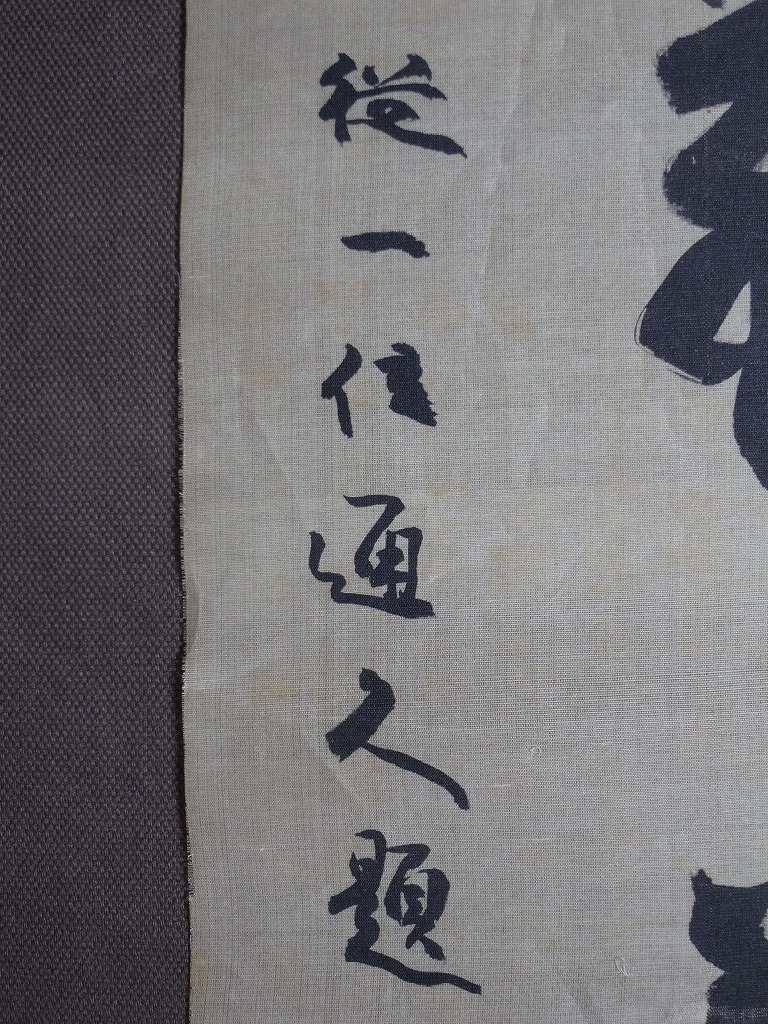 從一位通久題